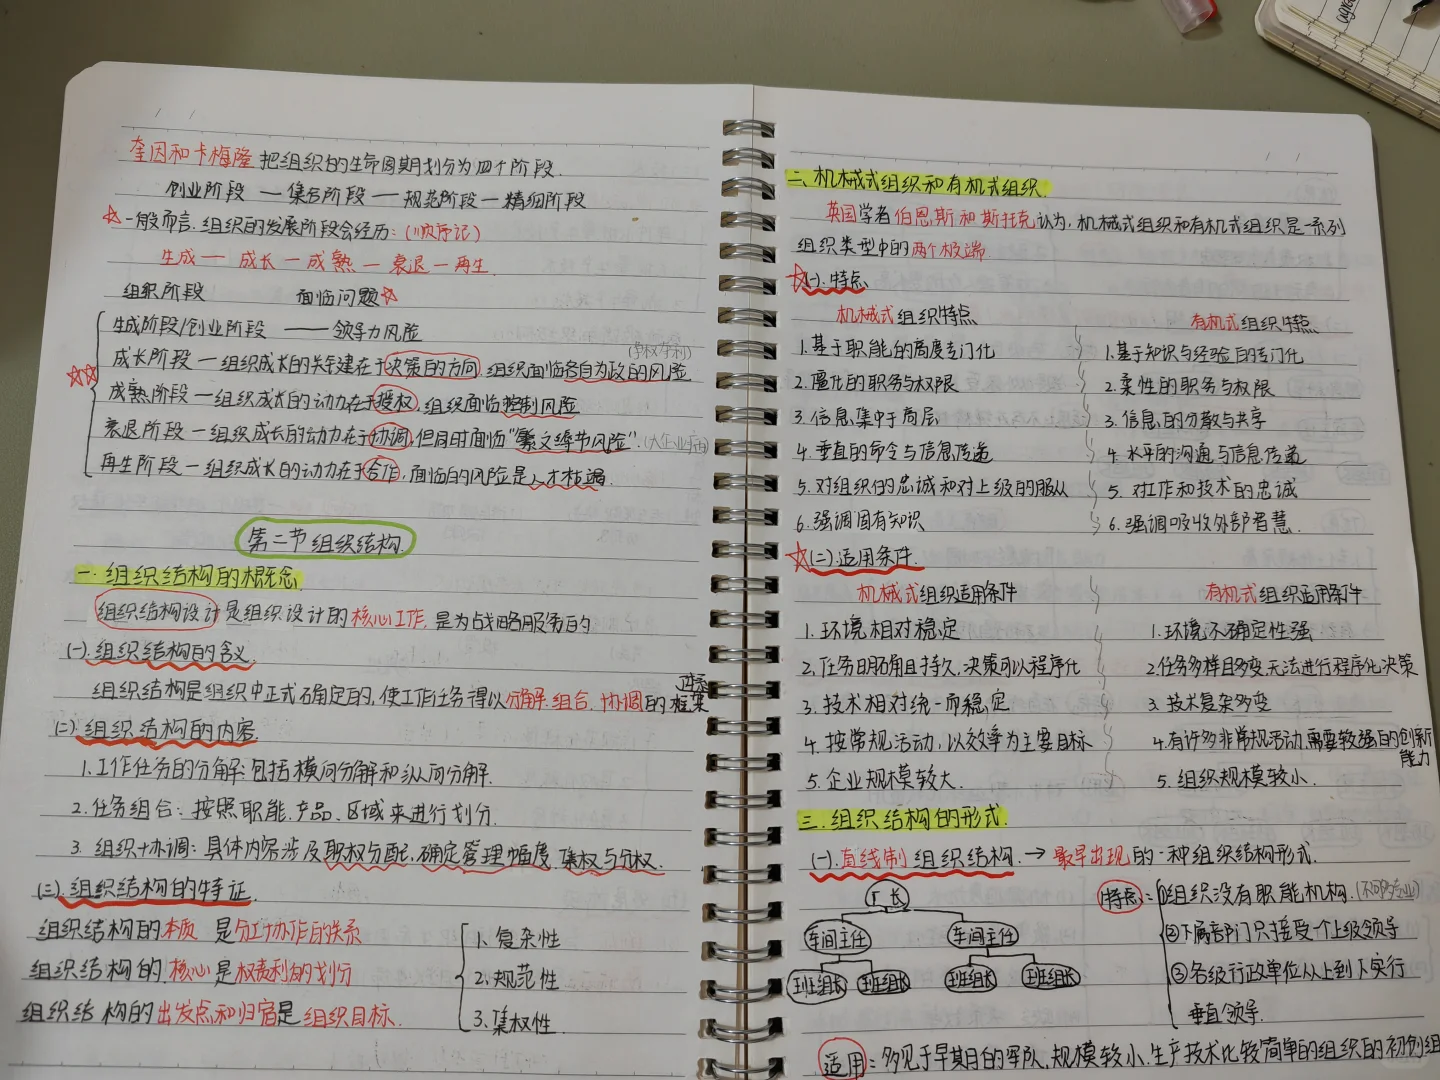 奎因和卡梅隆把组织的生命周期划分为四个阶段.
创业阶段 — 集合阶段 — 规范阶段 — 精细阶段
☆一般而言,组织的发展阶段会经历:(顺序记)
生成 — 成长 — 成熟 — 衰退 — 再生.
组织阶段 面临问题☆
生成阶段/创业阶段 —— 领导力风险
成长阶段 — 组织成长的关键在于决策的方向,组织面临各自为政的风险
☆☆
成熟阶段 — 组织成长的动力在于授权,组织面临控制风险
衰退阶段 — 组织成长的动力在于协调,但同时面临"繁文缛节风险".(大企业病)
再生阶段 — 组织成长的动力在于合作,面临的风险是人才枯竭.
第二节 组织结构.
一.组织结构的概念
组织结构设计是组织设计的核心工作,是为战略服务的
(一).组织结构的含义
组织结构是组织中正式确定的,使工作任务得以分解.组合.协调的框架
(二).组织结构的内容.
1.工作任务的分解:包括横向分解和纵向分解.
2.任务组合:按照职能.产品.区域来进行划分.
3.组织协调:具体内容涉及职权分配,确定管理幅度.集权与分权.
(三).组织结构的特征.
组织结构的本质是分工协作的关系
组织结构的核心是权责利的划分
组织结构的出发点和归宿是组织目标.
1.复杂性
2.规范性
3.集权性.
二.机械式组织和有机式组织.
英国学者伯恩斯和斯托克认为,机械式组织和有机式组织是一系列
组织类型中的两个极端.
☆(一).特点.
机械式组织特点 有机式组织特点
1.基于职能的高度专门化 1.基于知识与经验的专门化
2.僵化的职务与权限 2.柔性的职务与权限
3.信息集中于高层 3.信息的分散与共享
4.垂直的命令与信息传递 4.水平的沟通与信息传递
5.对组织的忠诚和对上级的服从 5.对工作和技术的忠诚
6.强调固有知识 6.强调吸收外部智慧.
☆(二).适用条件.
机械式组织适用条件 有机式组织适用条件
1.环境相对稳定 1.环境不确定性强
2.任务明确且持久,决策可以程序化 2.任务多样且多变,无法进行程序化决策
3.技术相对统一而稳定 3.技术复杂多变
4.按常规活动,以效率为主要目标 4.有许多非常规活动,需要较强的创新能力
5.企业规模较大. 5.组织规模较小.
三.组织结构的形式.
(一).直线制组织结构.→最早出现的一种组织结构形式.
厂长
车间主任 车间主任
班组长 班组长 班组长 班组长
特点:①组织没有职能机构.
②下属部门只接受一个上级领导
③各级行政单位从上到下实行
垂直领导.
适用:多见于早期的军队,规模较小.生产技术比较简单的组织的初创组